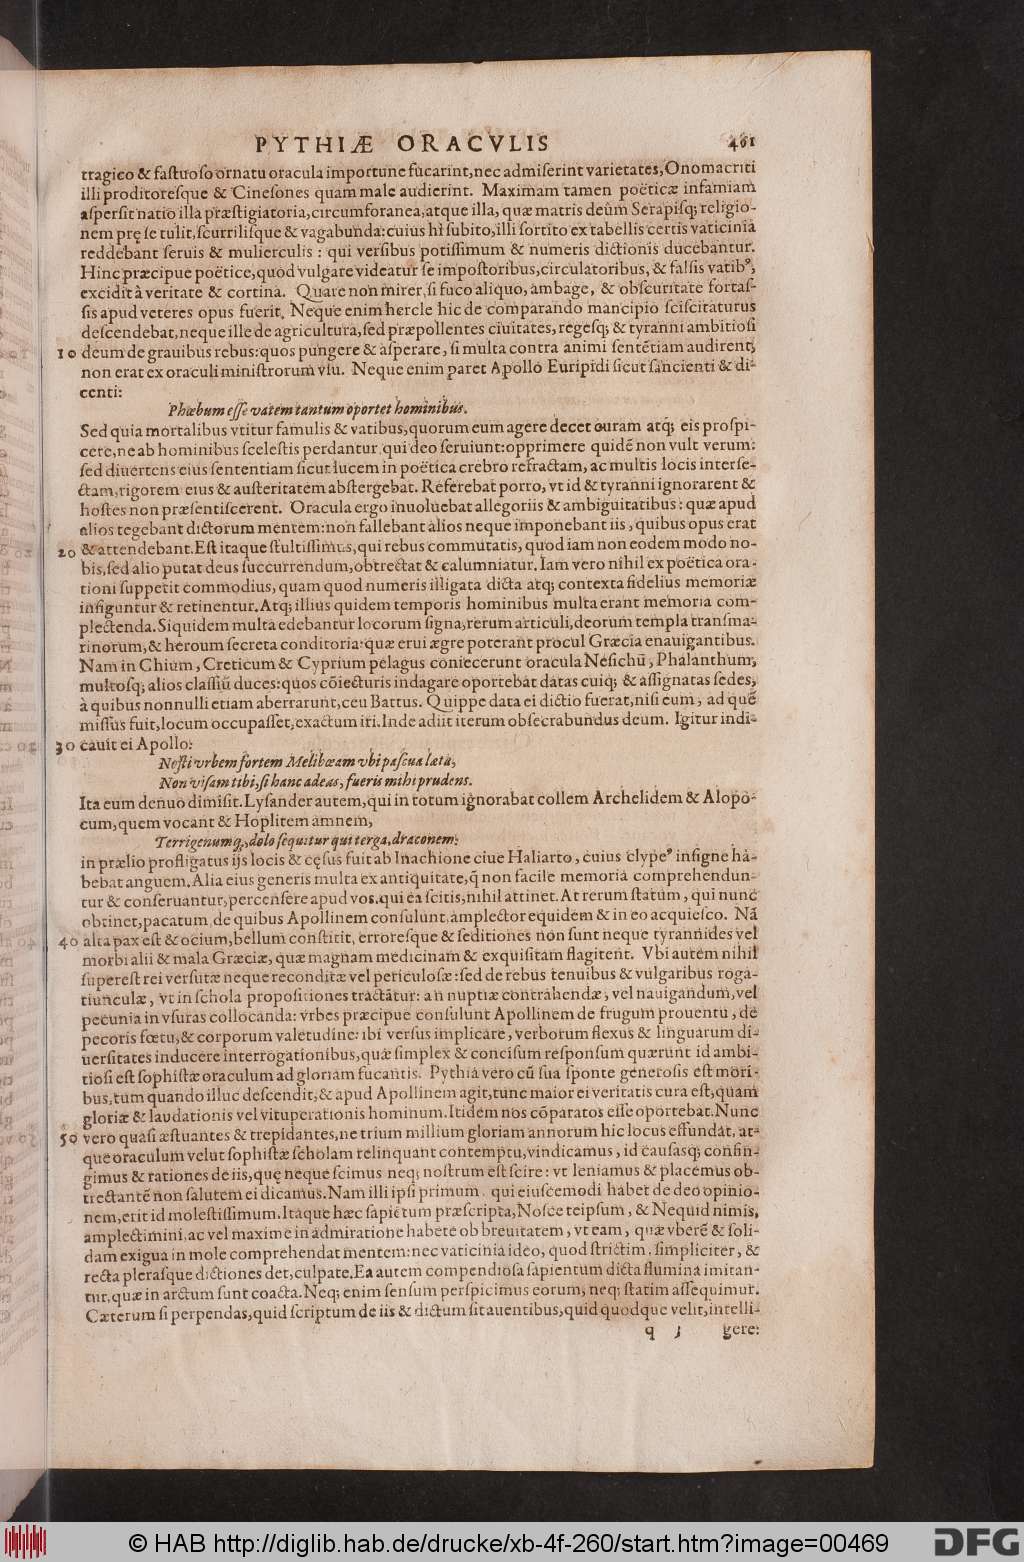 PYTHIÆ ORACVLIS 461
tragico & faſtuoſo ornatu oracula importune fucarint, nec admiſerint varietates, Onomacriti
illi proditoreſque & Cineſones quam male audierint. Maximam tamen poëticæ infamiam
aſperſit natio illa præſtigiatoria, circumforanea, atque illa, quæ matris deûm Serapiſq; religio-
nem pręſe tulit, ſcurriliſque & vagabunda: cuius hi ſubito, illi ſortito ex tabellis certis vaticinia
reddebant ſeruis & mulierculis: qui verſibus potiſſimum & numeris dictionis ducebantur.
Hinc præcipue poëtice, quod vulgare videatur ſe impoſtoribus, circulatoribus, & falſis vatibꝰ,
excidit à veritate & cortina. Quare non mirer, ſi fuco aliquo, ambage, & obſcuritate fortaſ-
ſis apud veteres opus fuerit. Neque enim hercle hic de comparando mancipio ſciſcitaturus
deſcendebat, neque ille de agricultura, ſed præpollentes ciuitates, regeſq; & tyranni ambitioſi
10 deum de grauibus rebus: quos pungere & aſperare, ſi multa contra animi ſentētiam audirent,
non erat ex oraculi miniſtrorum vſu. Neque enim paret Apollo Euripidi ſicut ſancienti & di-
centi:
Phœbum eſſe vatem tantum oportet hominibus.
Sed quia mortalibus vtitur famulis & vatibus, quorum eum agere decet curam atq; eis proſpi-
cere, ne ab hominibus ſceleſtis perdantur qui deo ſeruiunt: opprimere quidē non vult verum:
ſed diuertens eius ſententiam ſicut lucem in poëtica crebro refractam, ac multis locis interſe-
ctam, rigorem eius & auſteritatem abſtergebat. Referebat porro, vt id & tyranni ignorarent &
hoſtes non præſentiſcerent. Oracula ergo inuoluebat allegoriis & ambiguitatibus: quæ apud
alios tegebant dictorum mentem: non fallebant alios neque imponebant iis, quibus opus erat
20 & attendebant. Eſt itaque ſtultiſſimus, qui rebus commutatis, quod iam non eodem modo no-
bis, ſed alio putat deus ſuccurrendum, obtrectat & calumniatur. Iam vero nihil ex poëtica ora-
tioni ſuppetit commodius, quam quod numeris illigata dicta atq; contexta fidelius memoriæ
infiguntur & retinentur. Atq; illius quidem temporis hominibus multa erant memoria com-
plectenda. Siquidem multa edebantur locorum ſigna, rerum articuli, deorum templa tranſma-
rinorum, & heroum ſecreta conditoria: quæ erui ægre poterant procul Græcia enauigantibus.
Nam in Chium, Creticum & Cyprium pelagus coniecerunt oracula Neſichū, Phalanthum,
multoſq; alios claſſiū duces: quos cōiecturis indagare oportebat datas cuiq; & aſſignatas ſedes,
à quibus nonnulli etiam aberrarunt, ceu Battus. Quippe data ei dictio fuerat, niſi eum, ad quē
miſſus fuit, locum occupaſſet, exactum iri. Inde adiit iterum obſecrabundus deum. Igitur indi-
30 cauit ei Apollo:
Neſti vrbem fortem Melibœam vbi paſcua læta,
Non viſam tibi, ſi hanc adeas, fueris mihi prudens.
Ita eum denuo dimiſit. Lyſander autem, qui in totum ignorabat collem Archelidem & Alopo-
cum, quem vocant & Hopliten amnem,
Terrigenumq;, dolo ſequitur qui terga, draconem:
in prælio profligatus ijs locis & cęſus fuit ab Inachione ciue Haliarto, cuius clypeꝰ inſigne ha-
bebat anguem. Alia eius generis multa ex antiquitate, q̃ non facile memoria comprehendun-
tur & conſeruantur, percenſere apud vos, qui ea ſcitis, nihil attinet. At rerum ſtatum, qui nunc
obtinet, pacatum, de quibus Apollinem conſulunt, amplector equidem & in eo acquieſco. Nā
40 alta pax eſt & ocium, bellum conſtitit, erroreſque & ſeditiones non ſunt neque tyrannides vel
morbi alii & mala Græciæ, quæ magnam medicinam & exquiſitam flagitent. Vbi autem nihil
ſupereſt rei verſutæ neque reconditæ vel periculoſæ: ſed de rebus tenuibus & vulgaribus roga-
tiunculæ, vt in ſchola propoſitiones tractātur: an nuptiæ contrahendæ, vel nauigandum, vel
pecunia in vſuras collocanda: vrbes præcipue conſulunt Apollinem de frugum prouentu, de
pecoris fœtu, & corporum valetudine: ibi verſus implicare, verborum flexus & linguarum di-
uerſitates inducere interrogationibus, quæ ſimplex & conciſum reſponſum quærunt id ambi-
tioſi eſt ſophiſtæ oraculum ad gloriam fucantis. Pythia vero cū ſua ſponte generoſis eſt mori-
bus, tum quando illuc deſcendit, & apud Apollinem agit, tunc maior ei veritatis cura eſt, quam
gloriæ & laudationis vel vituperationis hominum. Itidem nos cōparatos eſſe oportebat. Nunc
50 vero quaſi æſtuantes & trepidantes, ne trium millium gloriam annorum hic locus effundat, at-
que oraculum velut ſophiſtæ ſcholam relinquant contemptu, vindicamus, id cauſaſq; confin-
gimus & rationes de iis, quę neque ſcimus neq; noſtrum eſt ſcire: vt leniamus & placemus ob-
trectantē non ſalutem ei dicamus. Nam illi ipſi primum, qui eiuſcemodi habet de deo opinio-
nem, erit id moleſtiſſimum. Itaque hæc ſapiētum præſcripta, Noſce teipſum, & Nequid nimis,
amplectimini, ac vel maxime in admiratione habete ob breuitatem, vt eam, quæ vberē & ſoli-
dam exigua in mole comprehendat mentem: nec vaticinia ideo, quod ſtrictim, ſimpliciter, &
recta pleraſque dictiones det, culpate. Ea autem compendioſa ſapientum dicta flumina imitan-
tur, quæ in arctum ſunt coacta. Neq; enim ſenſum perſpicimus eorum, neq; ſtatim aſſequimur.
Cæterum ſi perpendas, quid ſcriptum de iis & dictum ſit auentibus, quid quodque velit, intelli-
q 3 gere:
© HAB http://diglib.hab.de/drucke/xb-4f-260/start.htm?image=00469
DFG